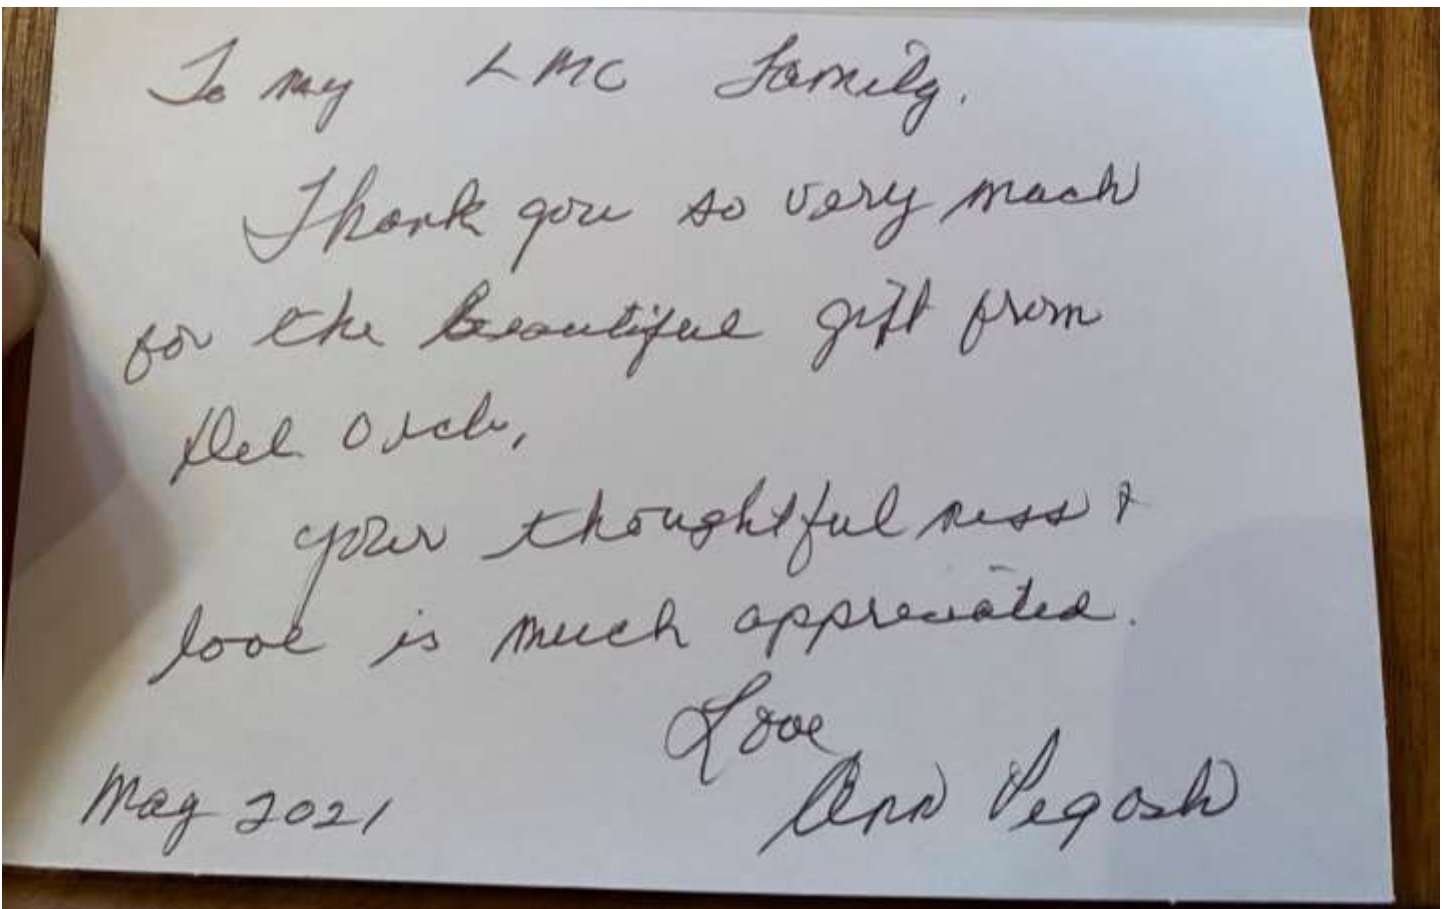 To my LMC Family.
Thank you so very much
for the beautiful gift from
Del
your thoughtfulness &
love is much appreciated.
Love
May 2021 Ann Pegosh